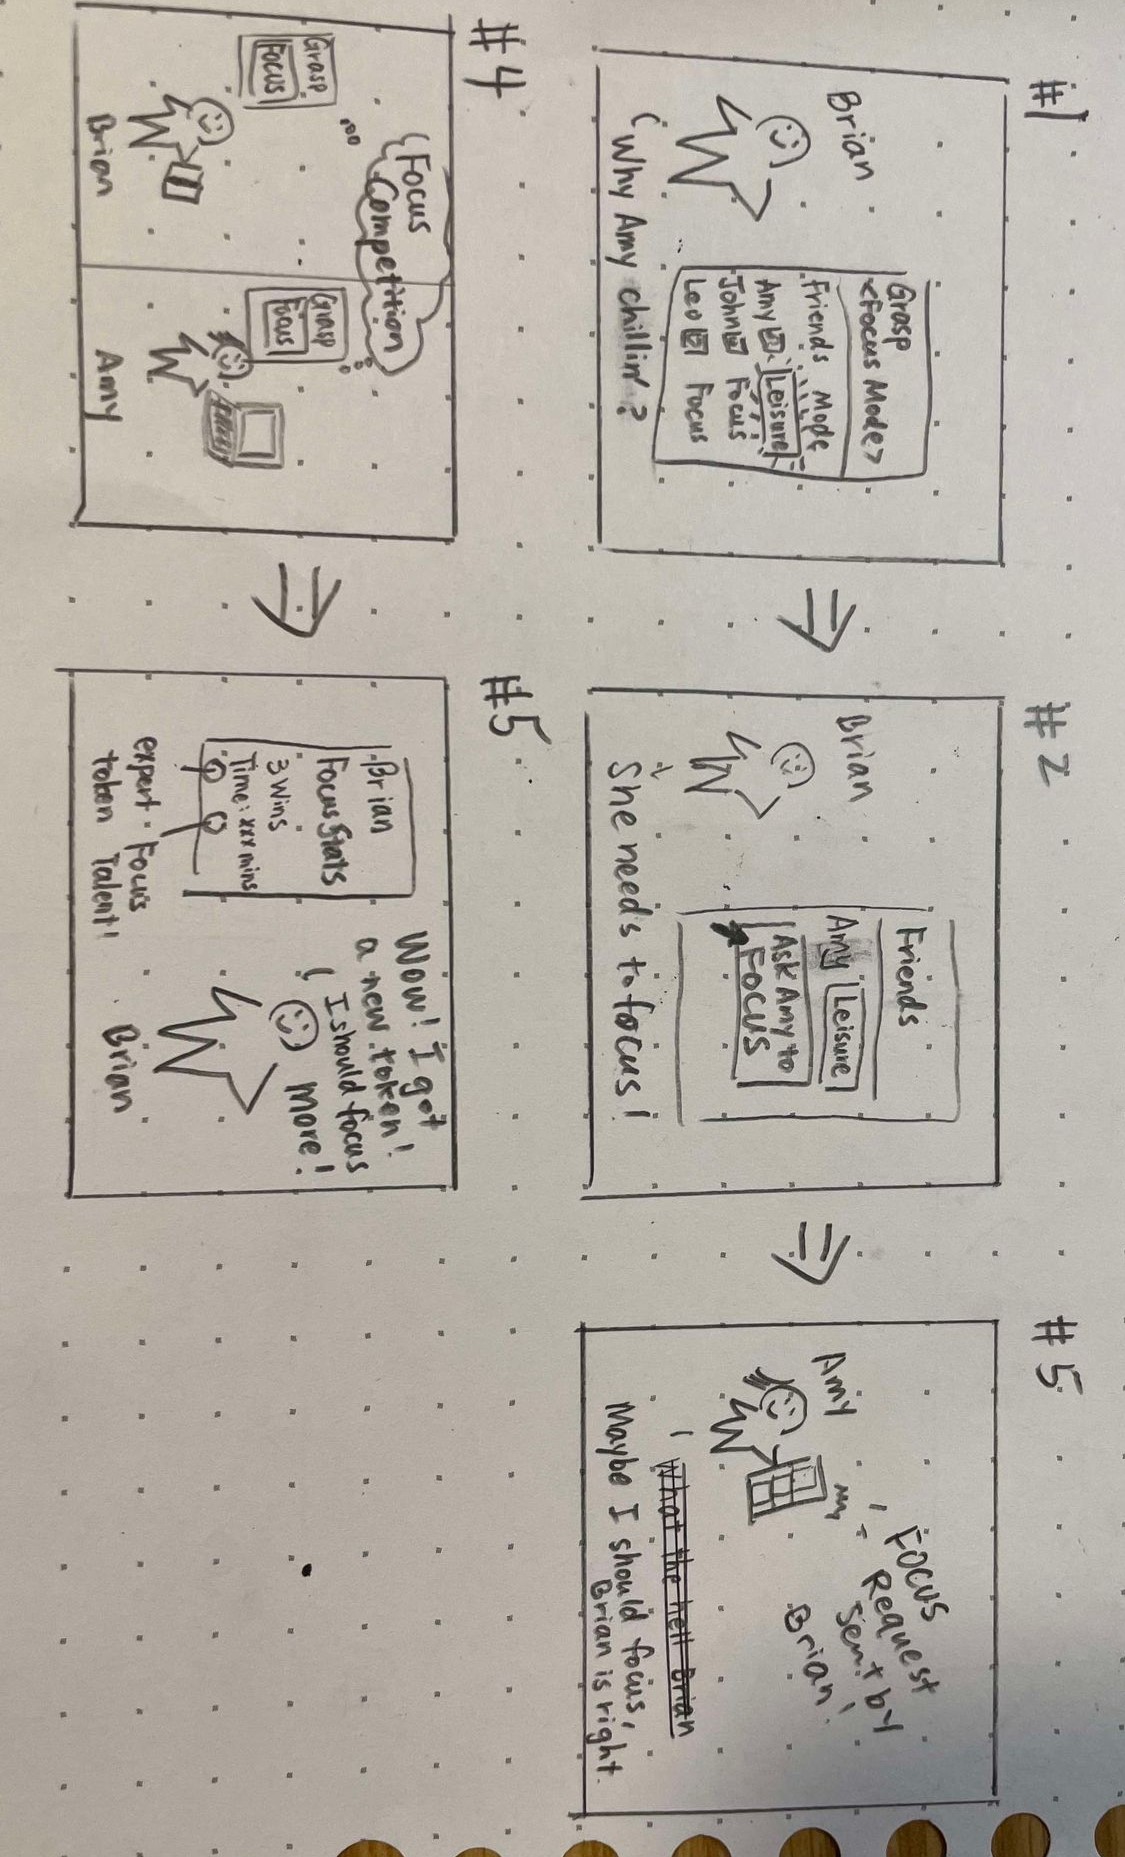 #1
Brian
Grasp
<Focus Mode>
Friends Mode
Amy Leisure
John Focus
Leo Focus
Why Amy chillin'?
#2
Brian
Friends
Amy Leisure
Ask Amy to
FOCUS
She needs to focus!
#5
Amy
FOCUS
Request
Sent by
Brian!
What the hell Brian
Maybe I should focus,
Brian is right.
#4
Focus
Competition
Grasp
FOCUS
Brian
Grasp
Focus
Amy
#5
Brian
Focus Stats
3 Wins
Time: xxx mins
expert
token
Focus
Talent!
Wow! I got
a new token!
I should focus
more!
Brian